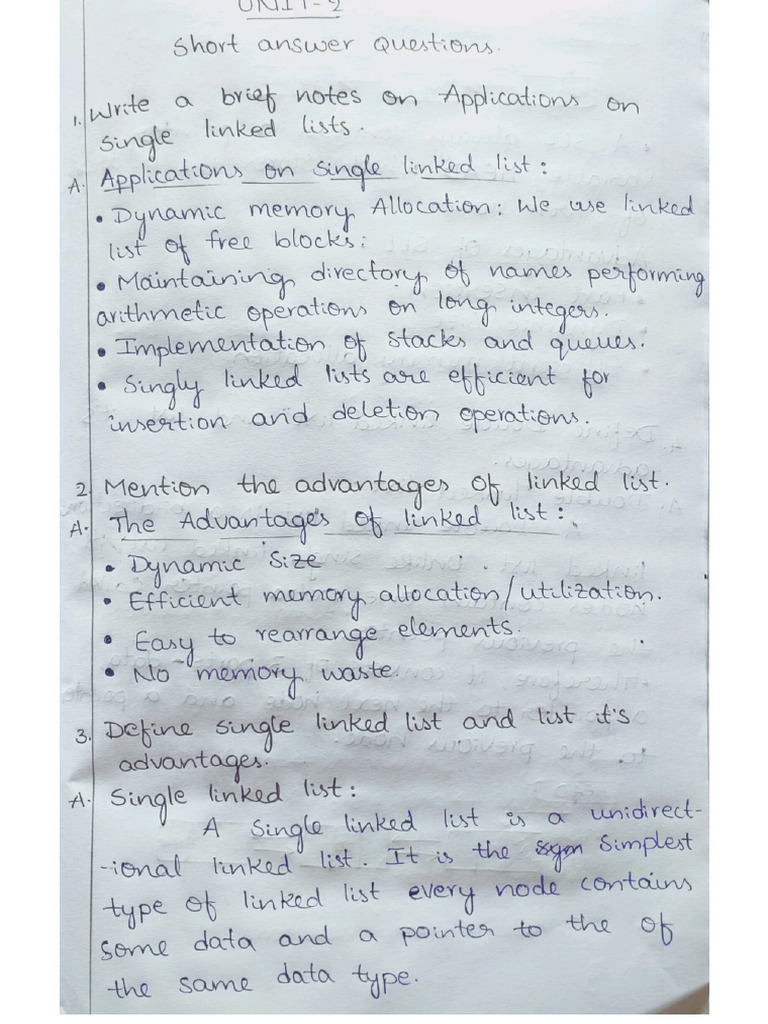 UNIT-2
Short answer Questions.
1. Write a brief notes on Applications on
single linked lists.
A. Applications on single linked list:
• Dynamic memory Allocation: We use linked
list of free blocks:
• Maintaining directory of names performing
arithmetic operations on long integers.
• Implementation of stacks and queues.
• Singly linked lists are efficient for
insertion and deletion operations.
2. Mention the advantages of linked list.
A. The Advantages of linked list:
• Dynamic Size
• Efficient memory allocation/utilization.
• Easy to rearrange elements.
• No memory waste.
3. Define single linked list and list it's
advantages.
A. Single linked list:
A single linked list is a unidirect-
-ional linked list. It is the simplest
type of linked list every node contains
some data and a pointer to the of
the same data type.